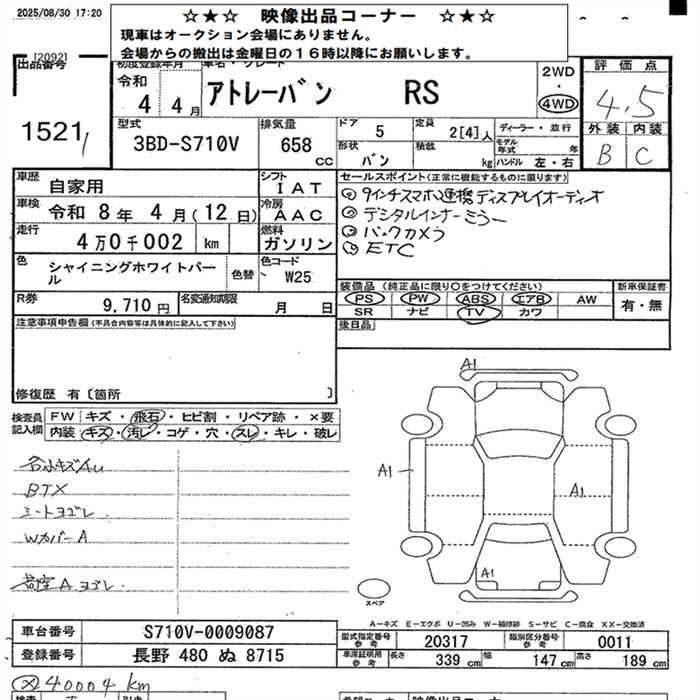 2025/08/30 17:20
☆★☆ 映像出品コーナー ☆★☆
現車はオークション会場にありません。
会場からの搬出は金曜日の16時以降にお願いします。
[2092]
出品番号
1521
初度登録年月
令和
4 4月
車名・グレード
アトレーバン RS
2WD
・
4WD
評価点
4.5
外装 内装
B C
型式
3BD-S710V
排気量
658 cc
ドア
5
定員
2[4]人
ディーラー・並行
形状
バン
積載
kg
モデル年式 年
ハンドル 左・右
車歴
自家用
シフト
IAT
車検
令和 8年 4月(12日)
冷房
AAC
走行
4万0千002 km
燃料
ガソリン
色
シャイニングホワイトパール
色替
色コード
W25
R券
9,710円
名変通知期限
月 日
セールスポイント(正常に機能するものに限ります)
9インチスマホ連携ディスプレイオーディオ
デジタルインナーミラー
バックカメラ
ETC
装備品(純正品に限り○をつけてください)
PS PW ABS エアB AW
SR ナビ TV カワ
新車保証書
有・無
後日品
注意事項申告欄(不具合内容等は具体的に記入して下さい)
修復歴 有〔箇所 〕
検査員記入欄
FW キズ・飛石・ヒビ割・リペア跡・×要
内装 キズ・汚レ・コゲ・穴・スレ・キレ・破レ
各小キズAu
BTX
シートヨゴレ
WカバーA
荷室A ヨゴレ
A1
A1
A1
A1
スペア
A-キズ E-エクボ U-凹み W-補修跡 S-サビ C-腐食 XX-交換済
車台番号
S710V-0009087
登録番号
長野 480 ぬ 8715
型式指定番号 参考
20317
類別区分番号 参考
0011
車庫証明用 参考
長さ 339cm 幅 147cm 高さ 189cm
× 40004km
検査
希望コーナー 映像出品コーナー